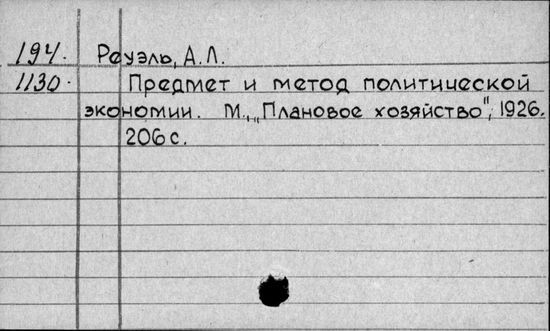 194. Реуэль, А.Л.
1130. Предмет и метод политической
экономии. М., „Плановое хозяйство", 1926.
206 с.